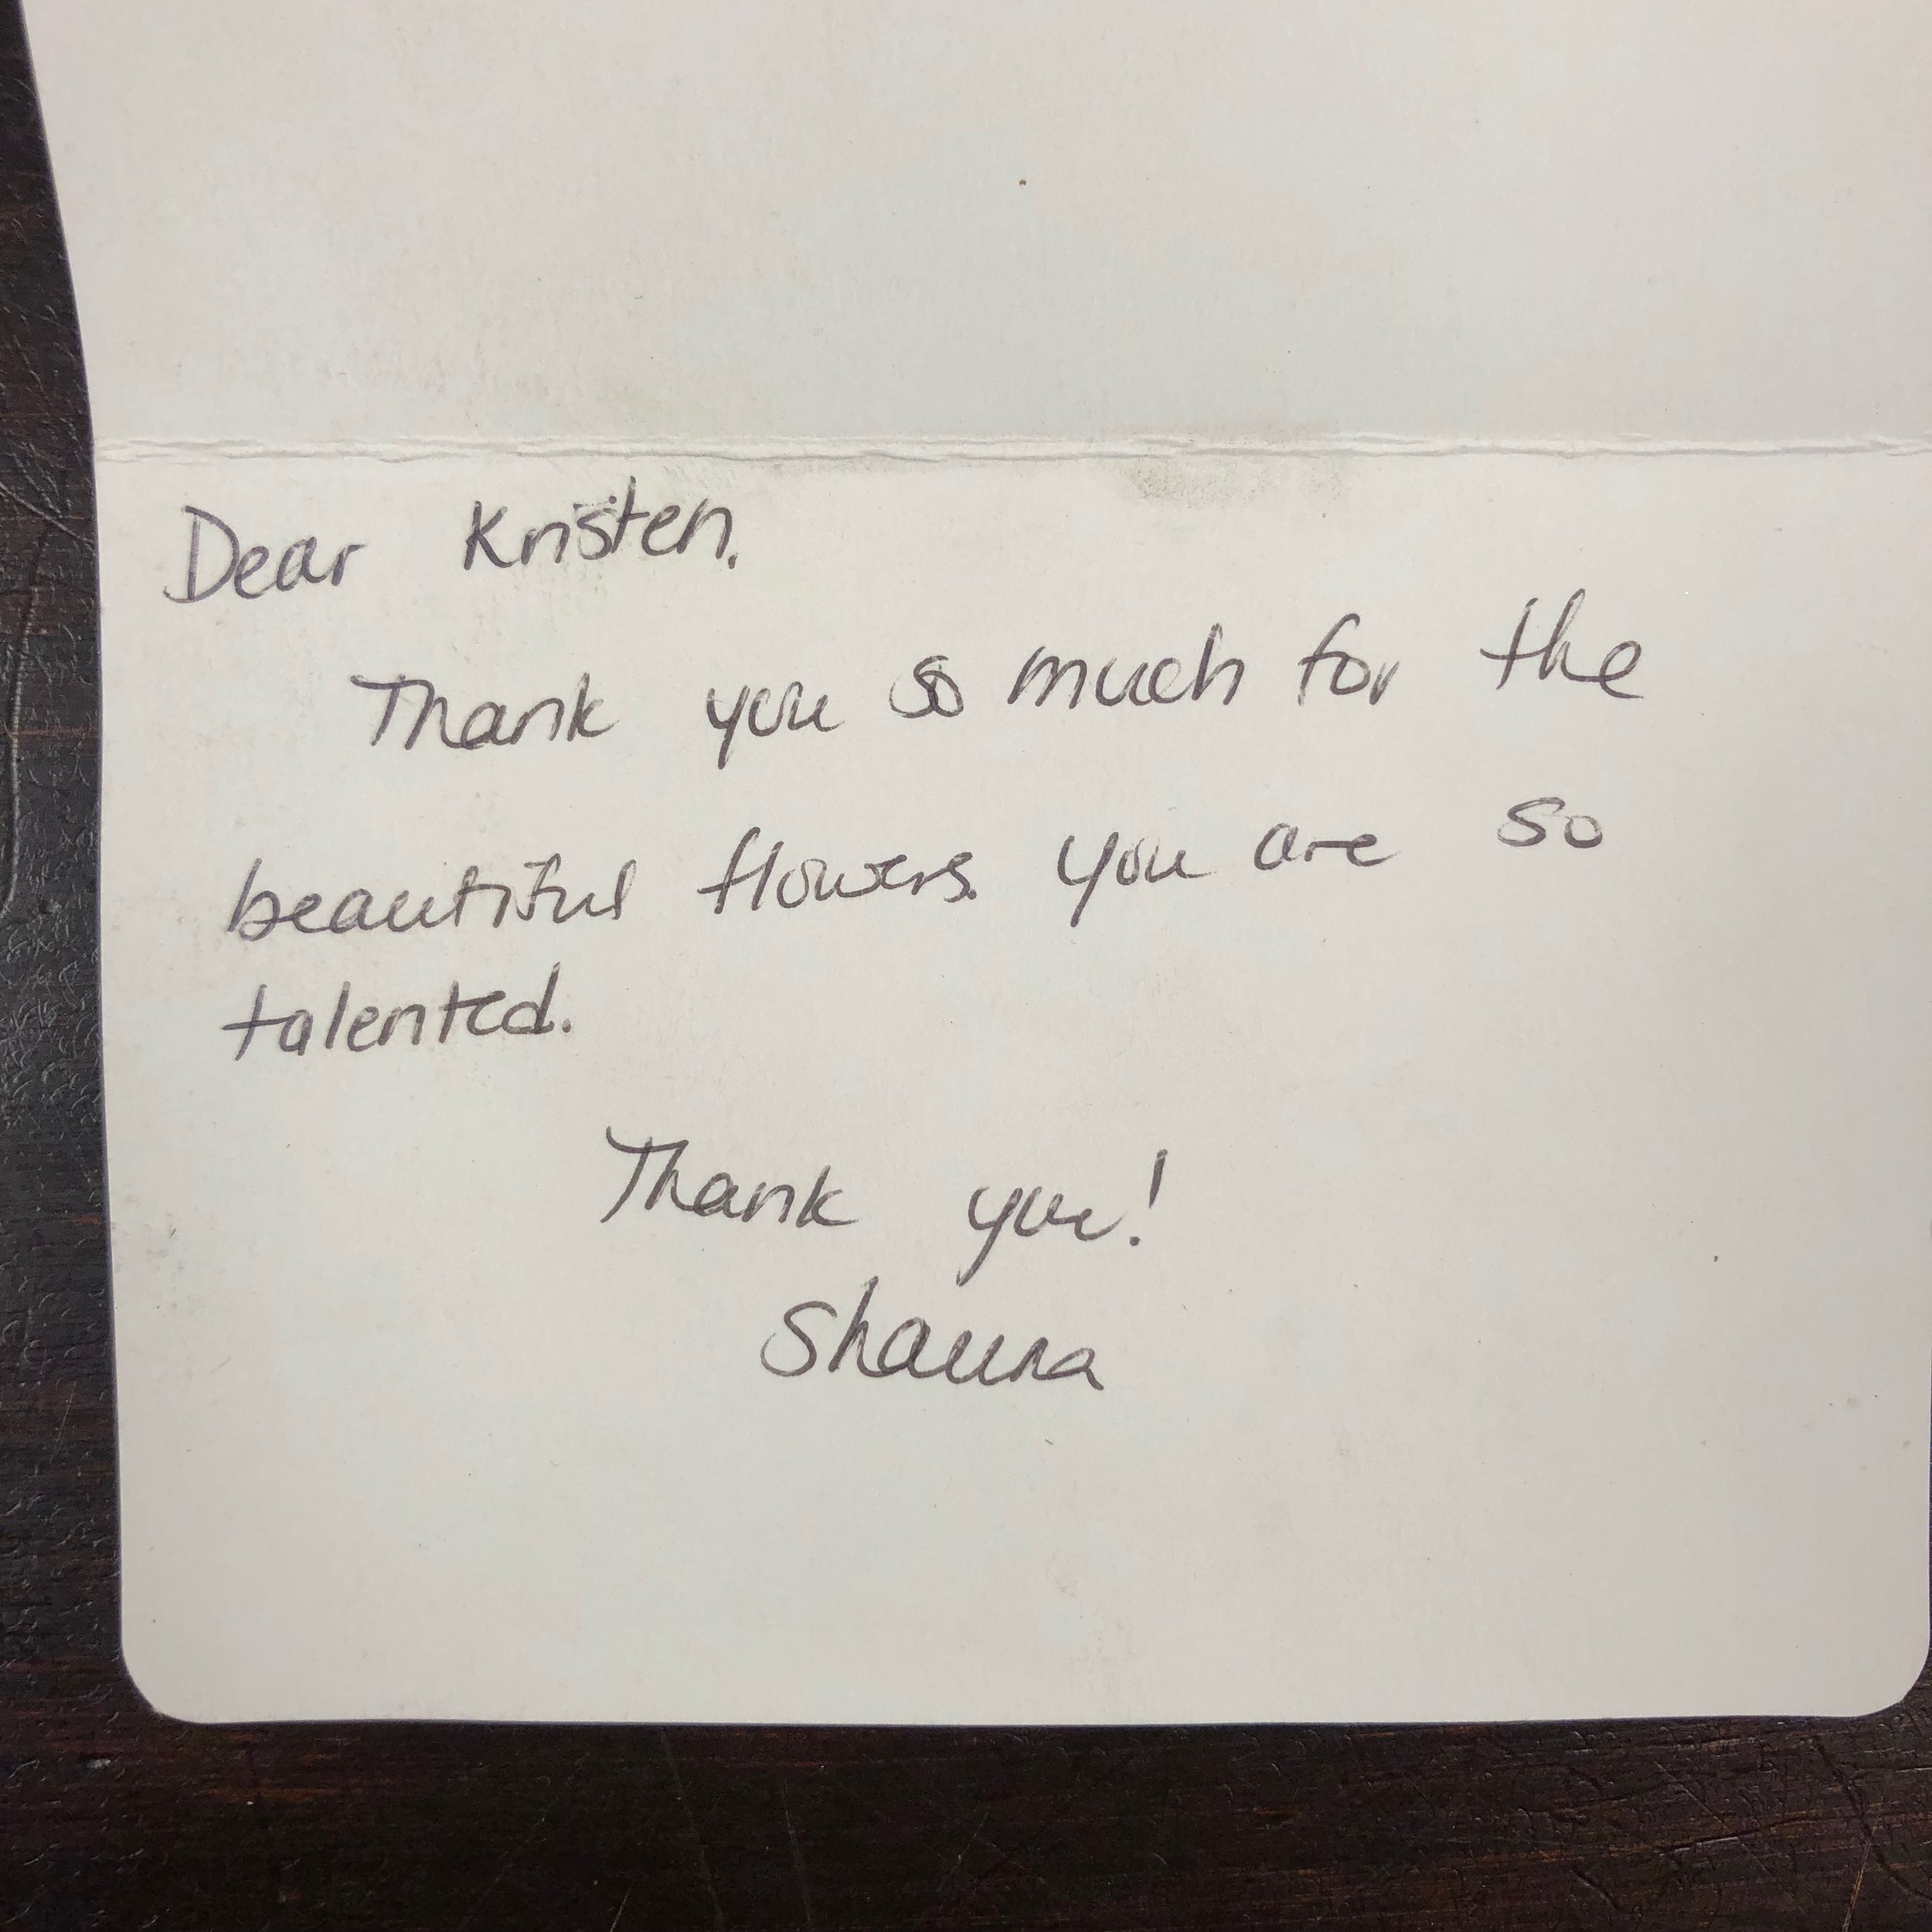 Dear Kristen,
Thank you so much for the
beautiful flowers. you are so
talented.
Thank you!
Shauna